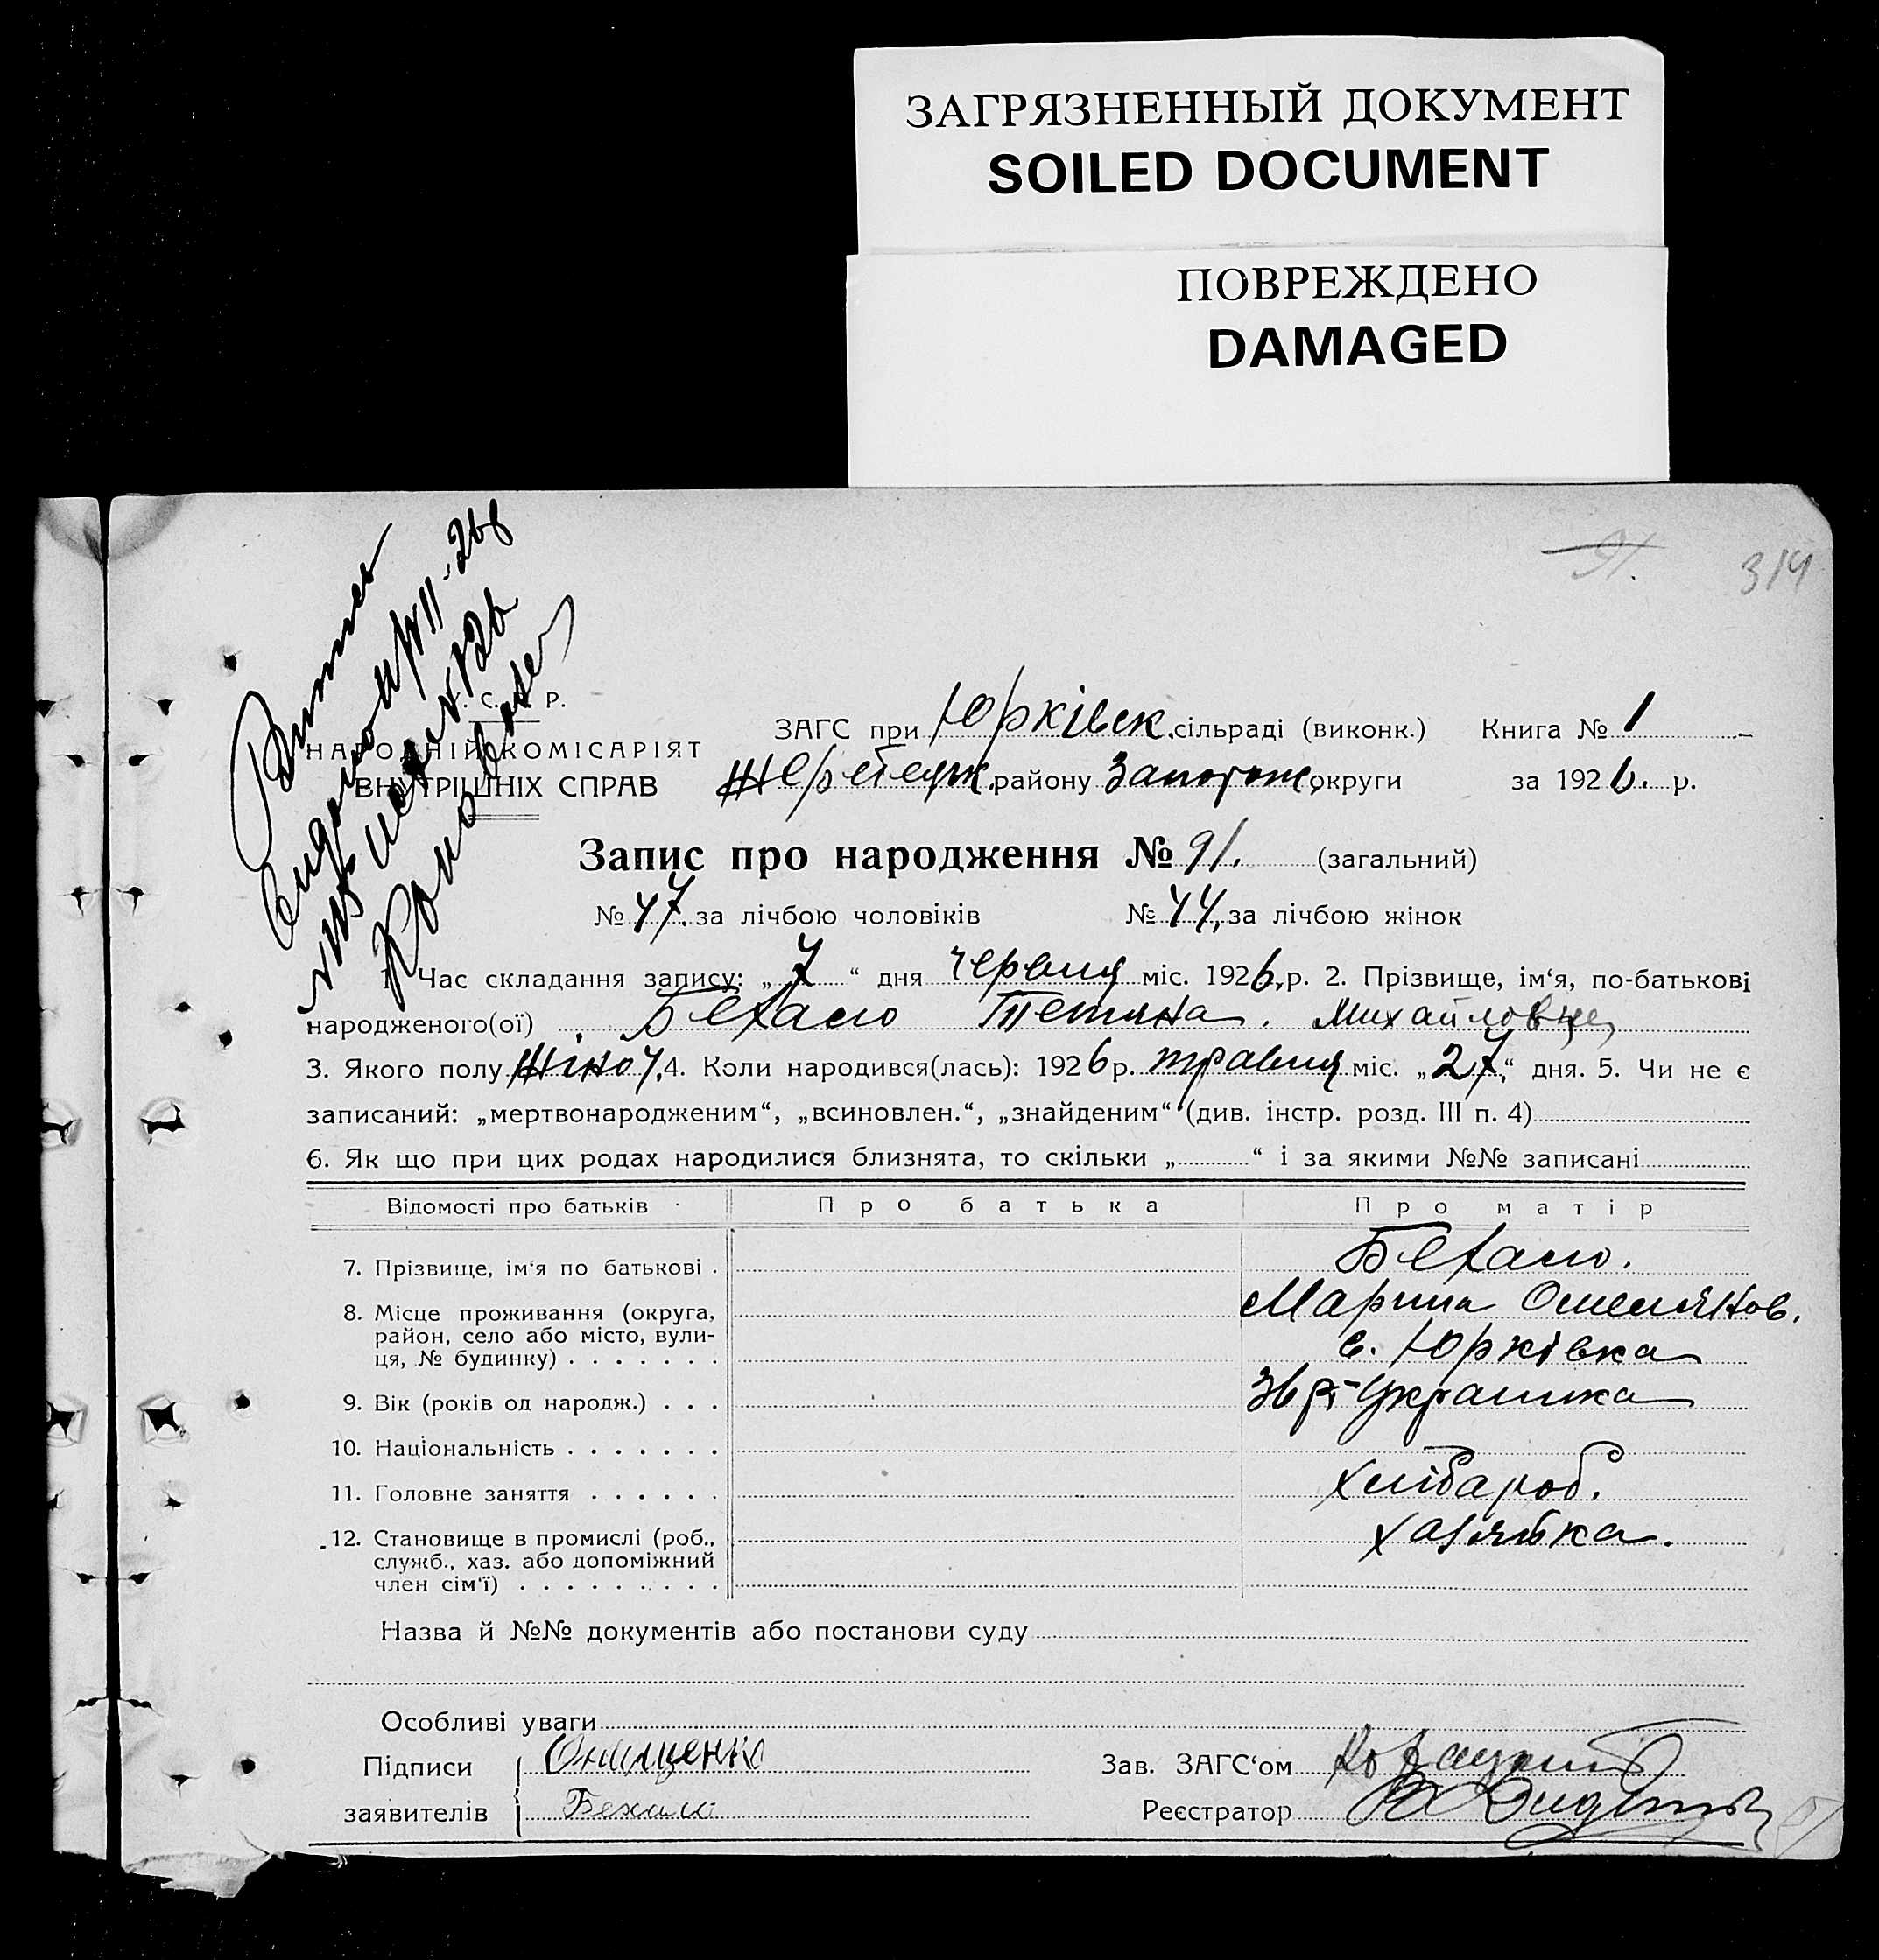 ЗАГРЯЗНЕННЫЙ ДОКУМЕНТ
SOILED DOCUMENT
ПОВРЕЖДЕНО
DAMAGED
91.
314
С. Р.
НАРОДНІЙ КОМІСАРІЯТ
ВНУТРІШНІХ СПРАВ
ЗАГС при Юрківск. сільраді (виконк.) Книга № 1
Жеребецьк. району Запоріж. округи за 1926. р.
Запис про народження № 91. (загальний)
№ 47. за лічбою чоловіків № 44. за лічбою жінок
1. Час складання запису: „7“ дня червня міс. 1926. р. 2. Прізвище, ім‘я, по-батькові
народженого(ої) Бехало Тетяна. Михайловна
3. Якого полу жіноч. 4. Коли народився(лась): 1926 р. травня міс. „27.“ дня. 5. Чи не є
записаний: „мертвонародженим“, „всиновлен.“, „знайденим“ (див. інстр. розд. III п. 4)
6. Як що при цих родах народилися близнята, то скільки „ “ і за якими №№ записані
Відомості про батьків Про батька Про матір
7. Прізвище, ім‘я по батькові . Бехало.
Марина Омелянов.
8. Місце проживання (округа,
район, село або місто, вули-
ця, № будинку) . . . . . . . с. Юрківка
9. Вік (років од народж.) . . . 36 р. Українка
10. Національність . . . . . . .
11. Головне заняття . . . . . . хлібароб.
12. Становище в промислі (роб.,
служб., хаз. або допоміжний
член сім‘ї) . . . . . . . . . хазяйка.
Назва й №№ документів або постанови суду
Особливі уваги
Підписи Онищенко Зав. ЗАГС‘ом
заявителів Бехало Реєстратор